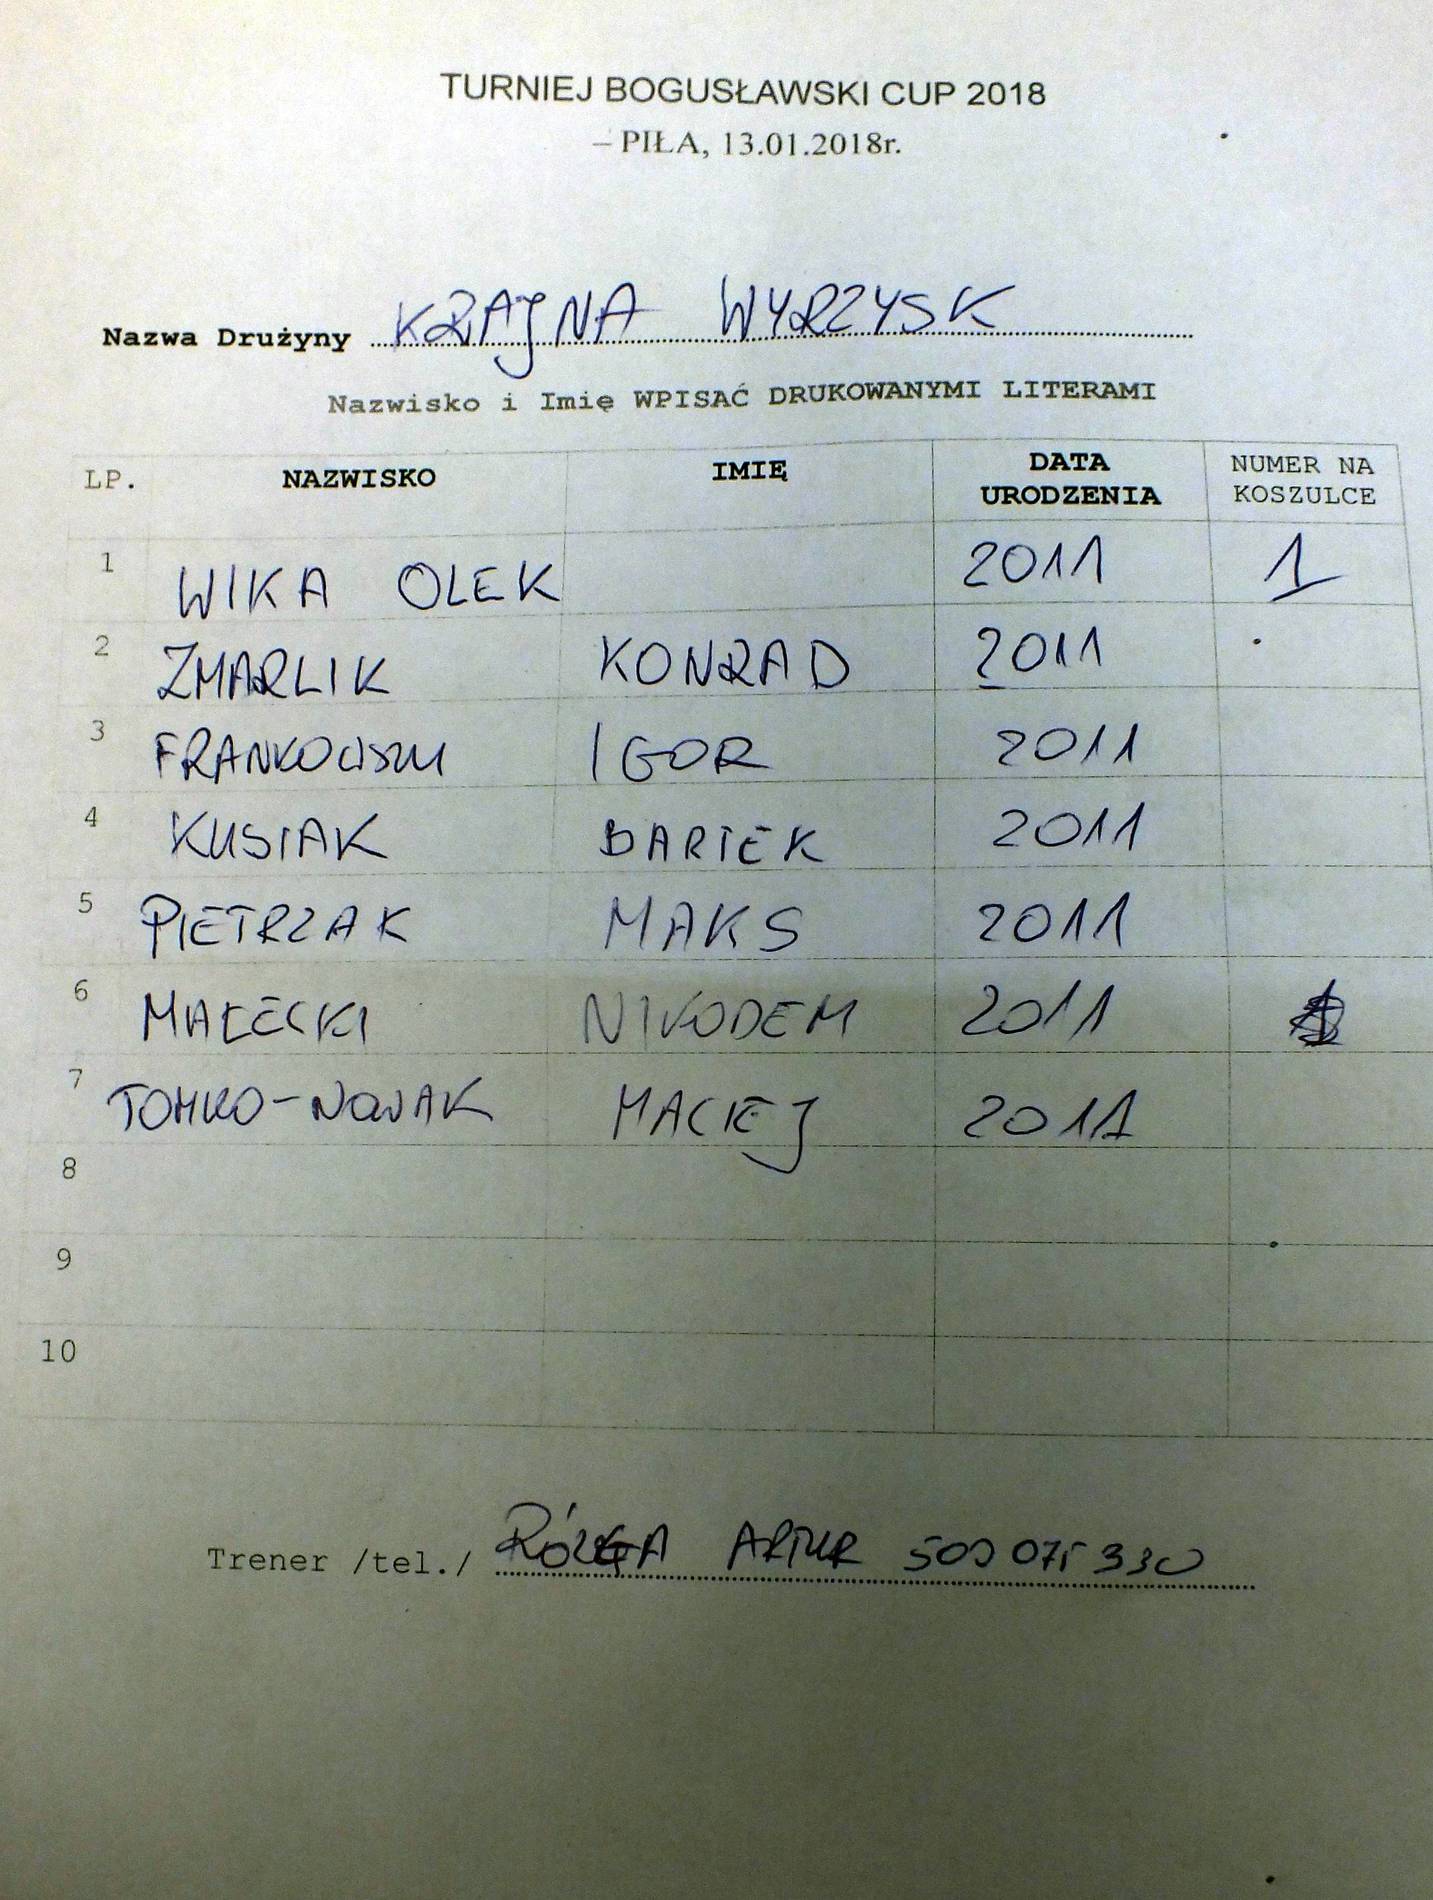 TURNIEJ BOGUSŁAWSKI CUP 2018
– PIŁA, 13.01.2018r.
Nazwa Drużyny KRAJNA WYRZYSK
Nazwisko i Imię WPISAĆ DRUKOWANYMI LITERAMI
LP. NAZWISKO IMIĘ DATA URODZENIA NUMER NA KOSZULCE
1 WIKA OLEK 2011 1
2 ZMARLIK KONRAD 2011
3 FRANKOWSKI IGOR 2011
4 KUSIAK BARTEK 2011
5 PIETRZAK MAKS 2011
6 MAŁECKI NIKODEM 2011
7 TOMKO-NOWAK MACIEJ 2011
8
9
10
Trener /tel./ RÓZGA ARTUR 500 075 330